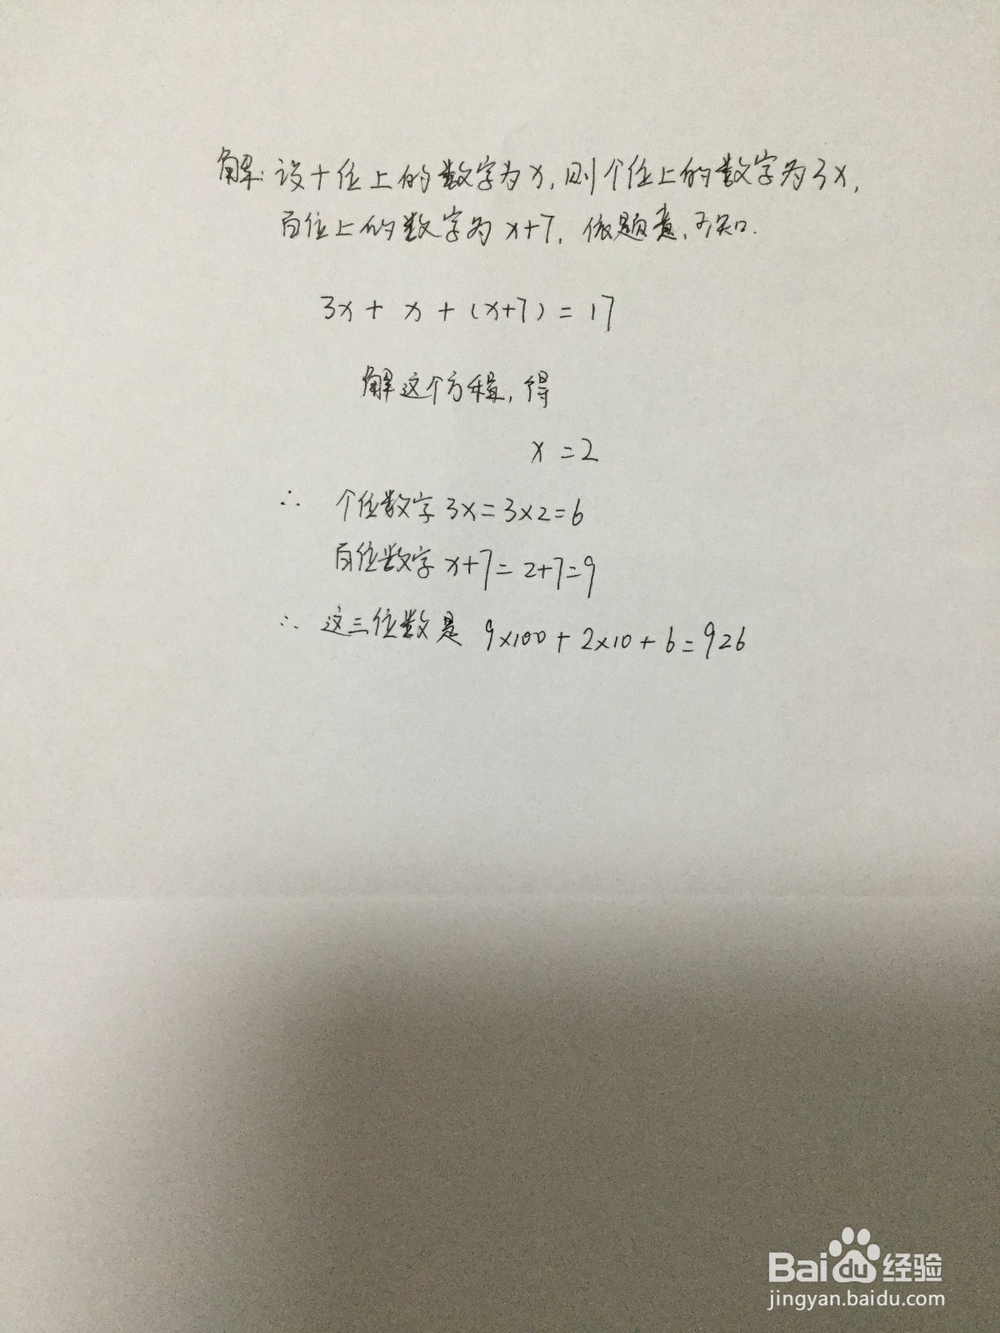 解:设十位上的数字为x,则个位上的数字为3x,
百位上的数字为x+7,依题意,可知.
3x+x+(x+7)=17
解这个方程,得
x=2
∴ 个位数字3x=3×2=6
百位数字x+7=2+7=9
∴ 这三位数是 9×100+2×10+6=926
Baidu经验
jingyan.baidu.com